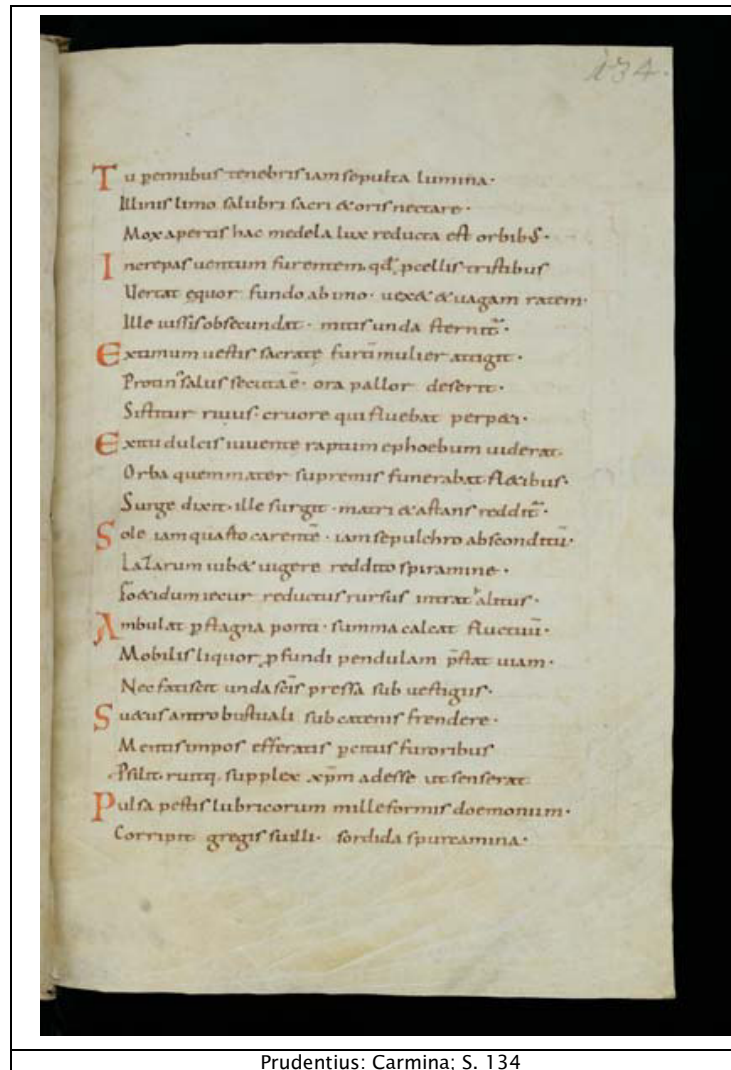 134.
Tu pennibus tenebris iam sepulta lumina·
Illinis limo salubri sacri & oris nectare·
Mox apertis hac medela lux reducta est orbib;·
Increpas uentum furentem, qđ pcellis tristibus
Uertat ęquor fundo ab imo· uex& & uagam ratem·
Ille iussis obsecundat· mitis unda sternit̃·
Extimum uestis sacratę furtī mulier attigit·
Protin' salus secuta ē· ora pallor deserit·
Sistitur riuus· cruore qui fluebat perp&i·
Exitu dulcis iuuentę raptum ephoebum uiderat·
Orba quem mater supremis funerabat fl&ibus·
Surge dixit· ille surgit· matri & astans reddit̃·
Sole iam quarto carentē· iam sepulchro absconditū·
Lazarum iub& uigere reddito spiramine·
Fo&idum iecur reductus rursus intrat halitus·
Ambulat p stagna ponti· summa calcat fluctuū·
Mobilis liquor pfundi pendulam p̄stat uiam·
Nec fatiscit unda scīs pressa sub uestigiis·
Su&us antro bustuali sub catenis frendere·
Mentis impos efferatis pcitus furoribus
Psilit· ruitq, supplex xp̄m adesse ut senserat·
Pulsa pestis lubricorum milleformis doemonum·
Corripit gregis suilli· sordida spurcamina·
Prudentius: Carmina; S. 134